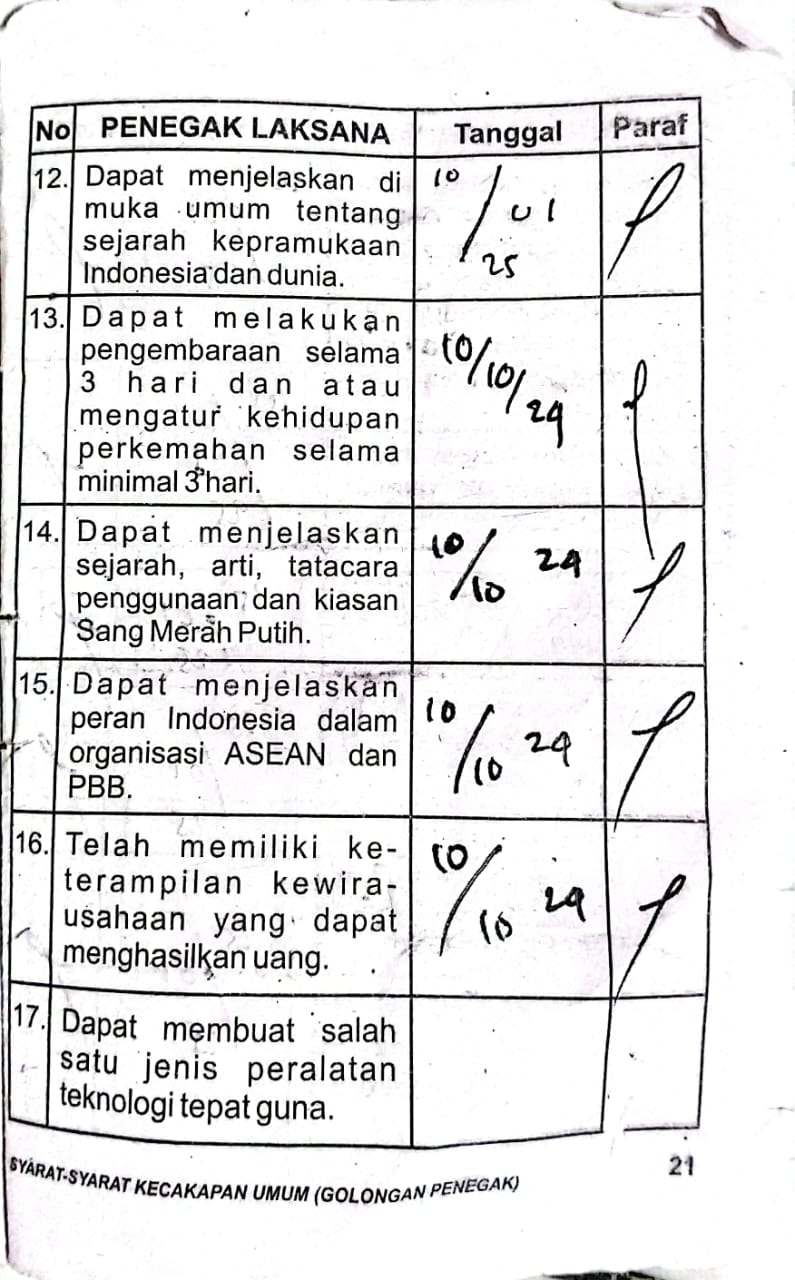 No PENEGAK LAKSANA Tanggal Paraf
12. Dapat menjelaskan di
muka umum tentang
sejarah kepramukaan
Indonesia dan dunia.
10/01
25
13. Dapat melakukan
pengembaraan selama
3 hari dan atau
mengatur kehidupan
perkemahan selama
minimal 3 hari.
10/10/24
14. Dapat menjelaskan
sejarah, arti, tatacara
penggunaan dan kiasan
Sang Merah Putih.
10/10 24
15. Dapat menjelaskan
peran Indonesia dalam
organisasi ASEAN dan
PBB.
10/10 24
16. Telah memiliki ke-
terampilan kewira-
usahaan yang dapat
menghasilkan uang.
10/10 24
17. Dapat membuat salah
satu jenis peralatan
teknologi tepat guna.
SYARAT-SYARAT KECAKAPAN UMUM (GOLONGAN PENEGAK)
21